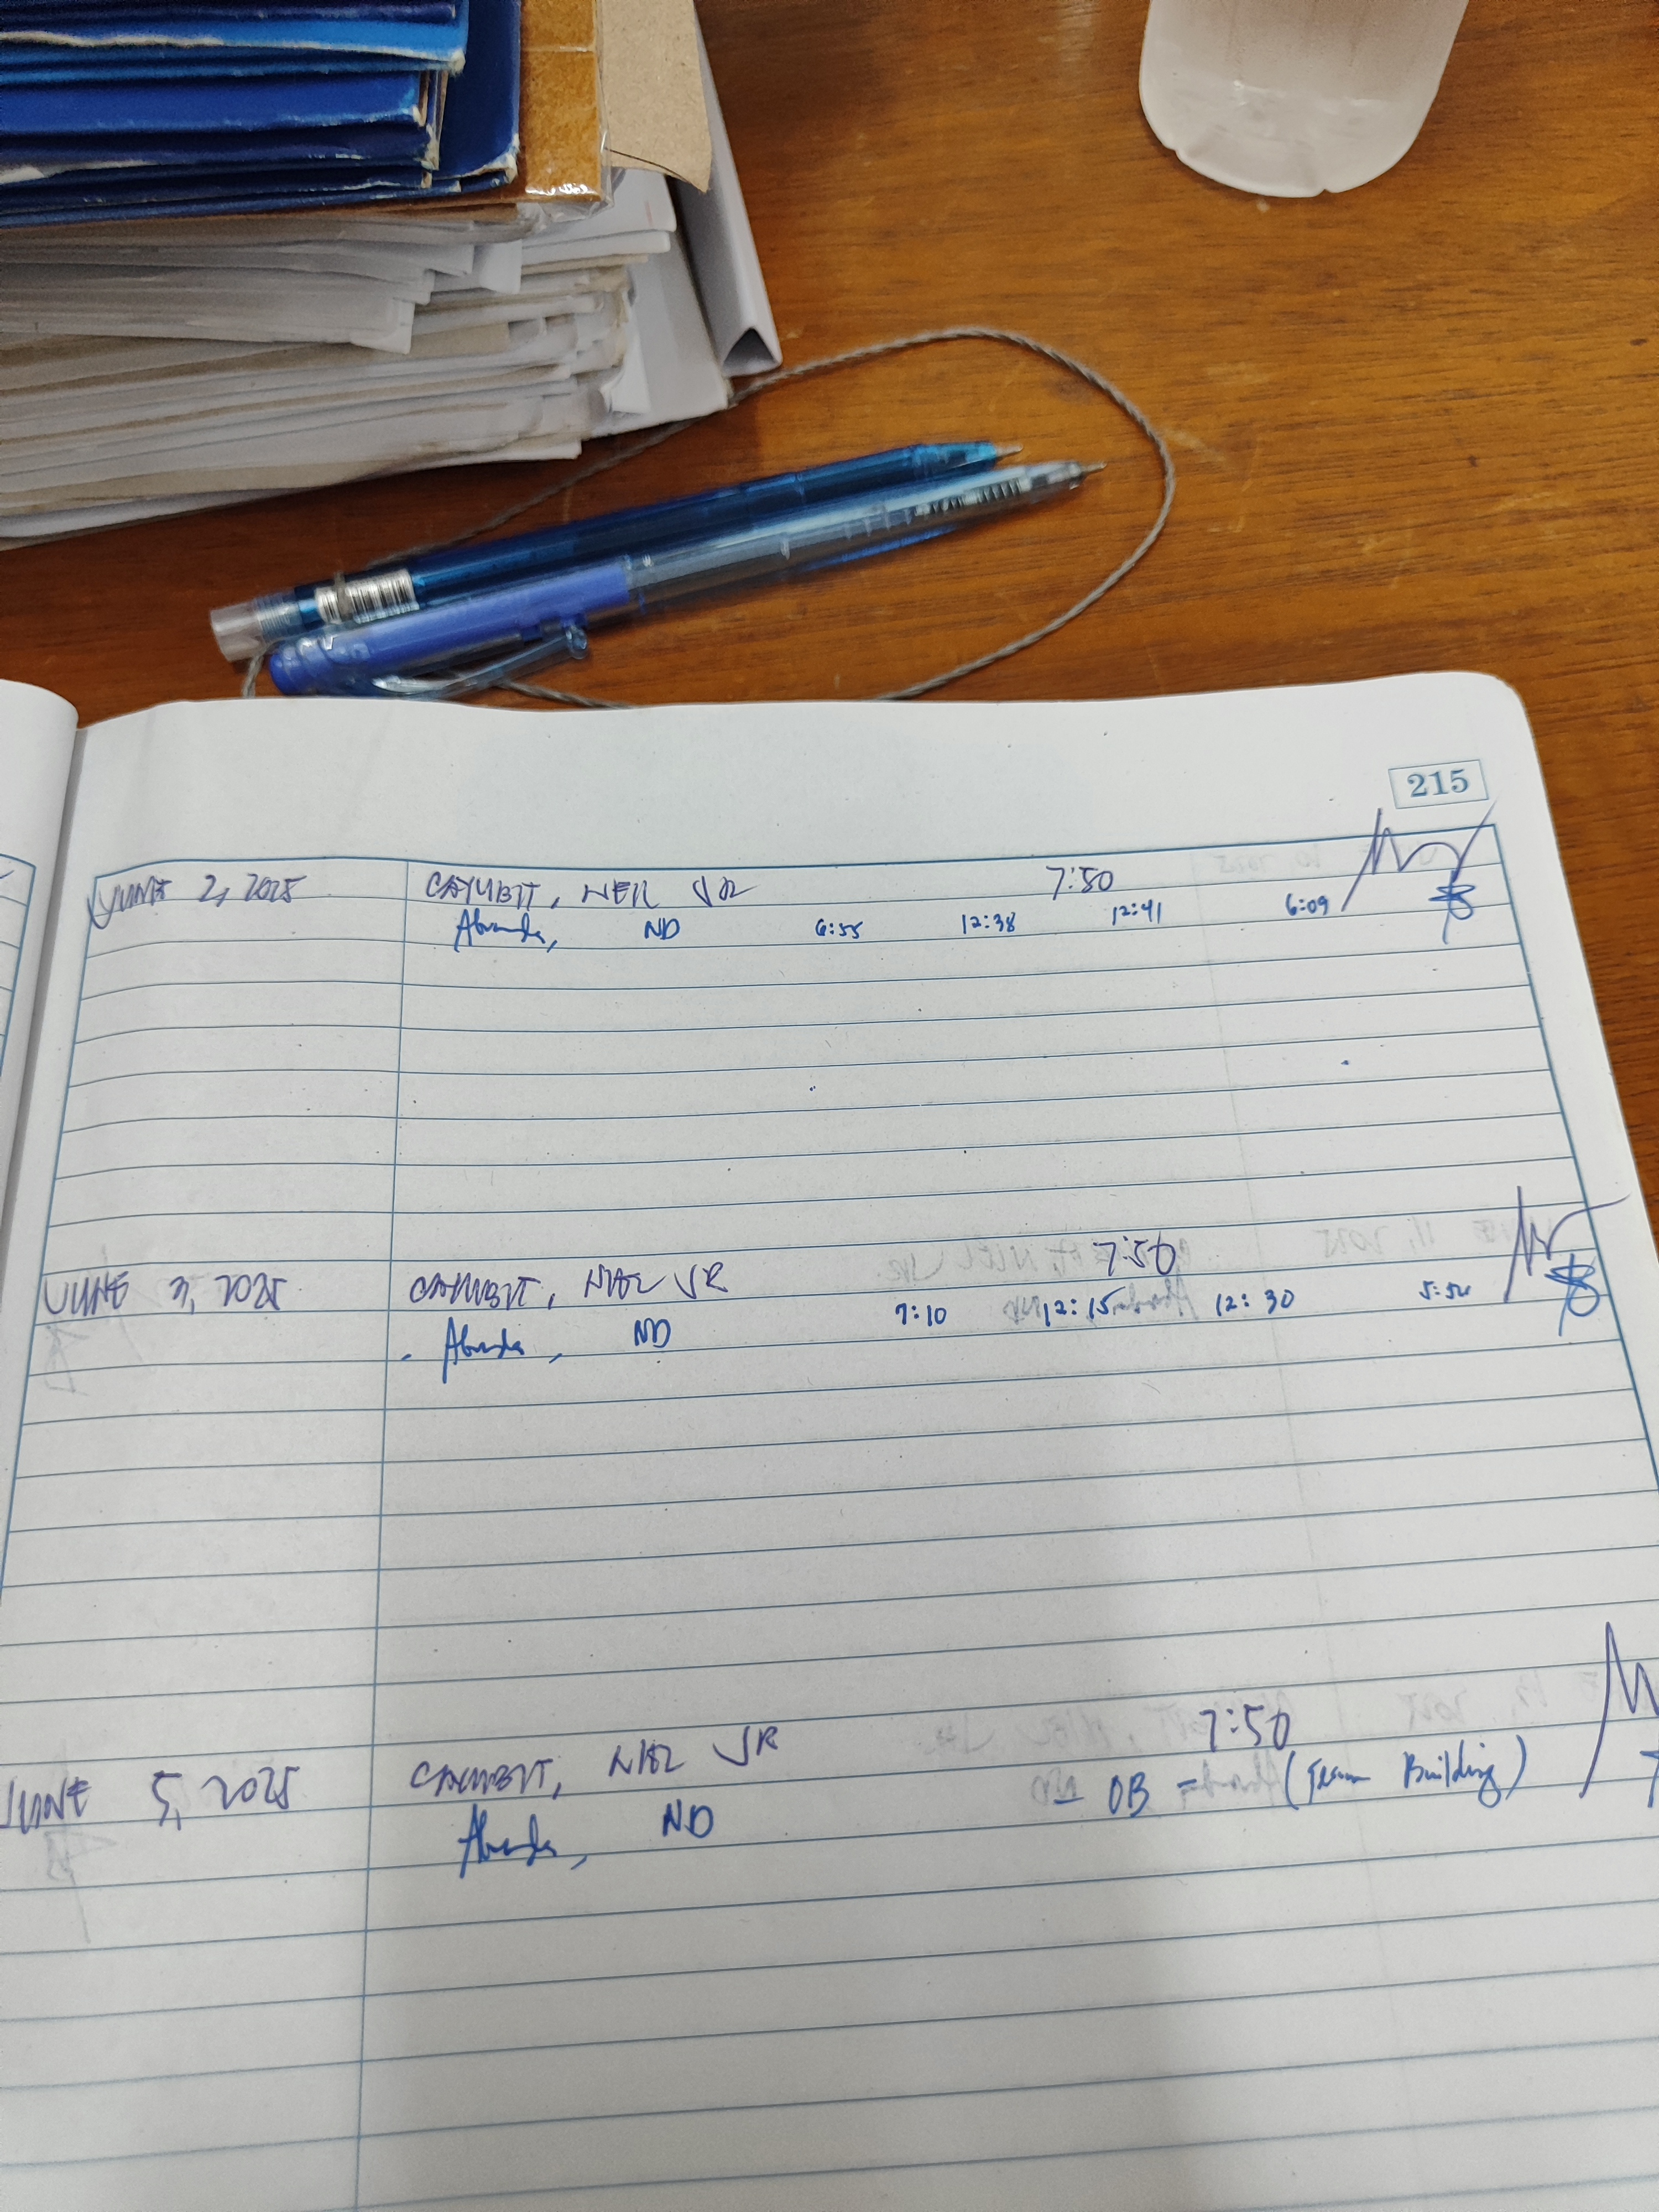 215
JUNE 2, 2025 CAYUBIT, NEIL JR 7:50
Abranda, ND 6:55 12:38 12:41 6:09
JUNE 3, 2025 CAYUBIT, NIEL JR 7:50
Abranda, ND 7:10 12:15 12:30
JUNE 5, 2025 CAYUBIT, NIEL JR 7:50
Abranda, ND - OB = (Team Building)